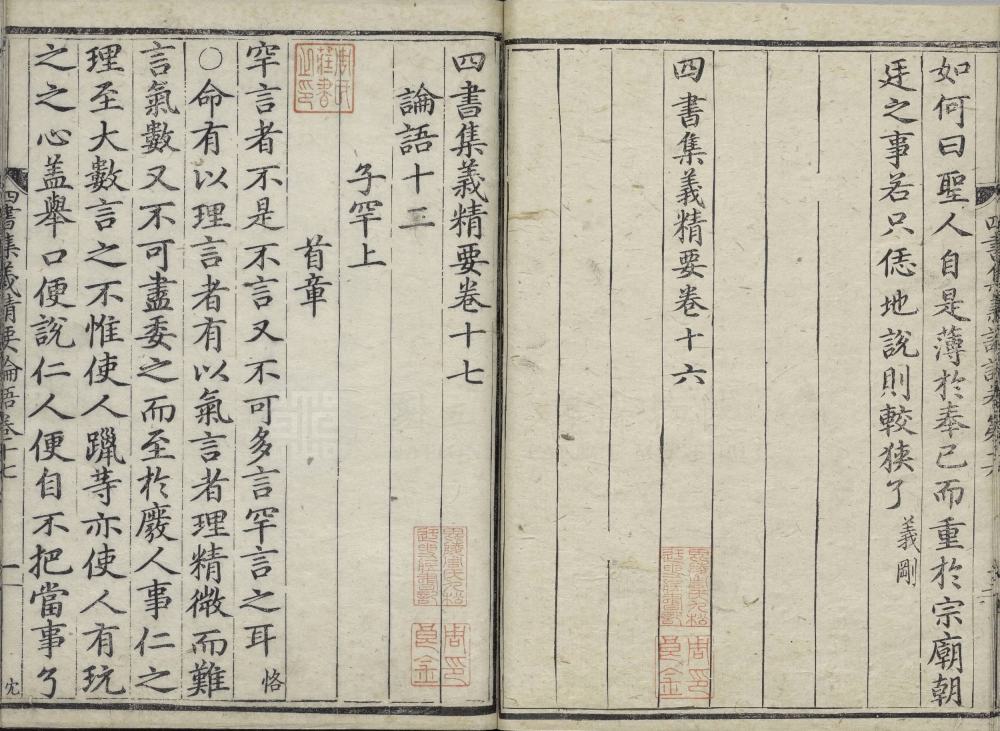 如何曰聖人自是薄於奉己而重於宗廟朝
廷之事若只恁地說則較狹了 義剛
四書集義精要卷十六
四書集義精要卷十七
論語十二
子罕上
首章
罕言者不是不言又不可多言罕言之耳 恪
○命有以理言者有以氣言者理精微而難
言氣數又不可盡委之而至於廢人事仁之
理至大數言之不惟使人躐等亦使人有玩
之之心盖舉口便說仁人便自不把當事了
四書集義精要論語卷十七 一